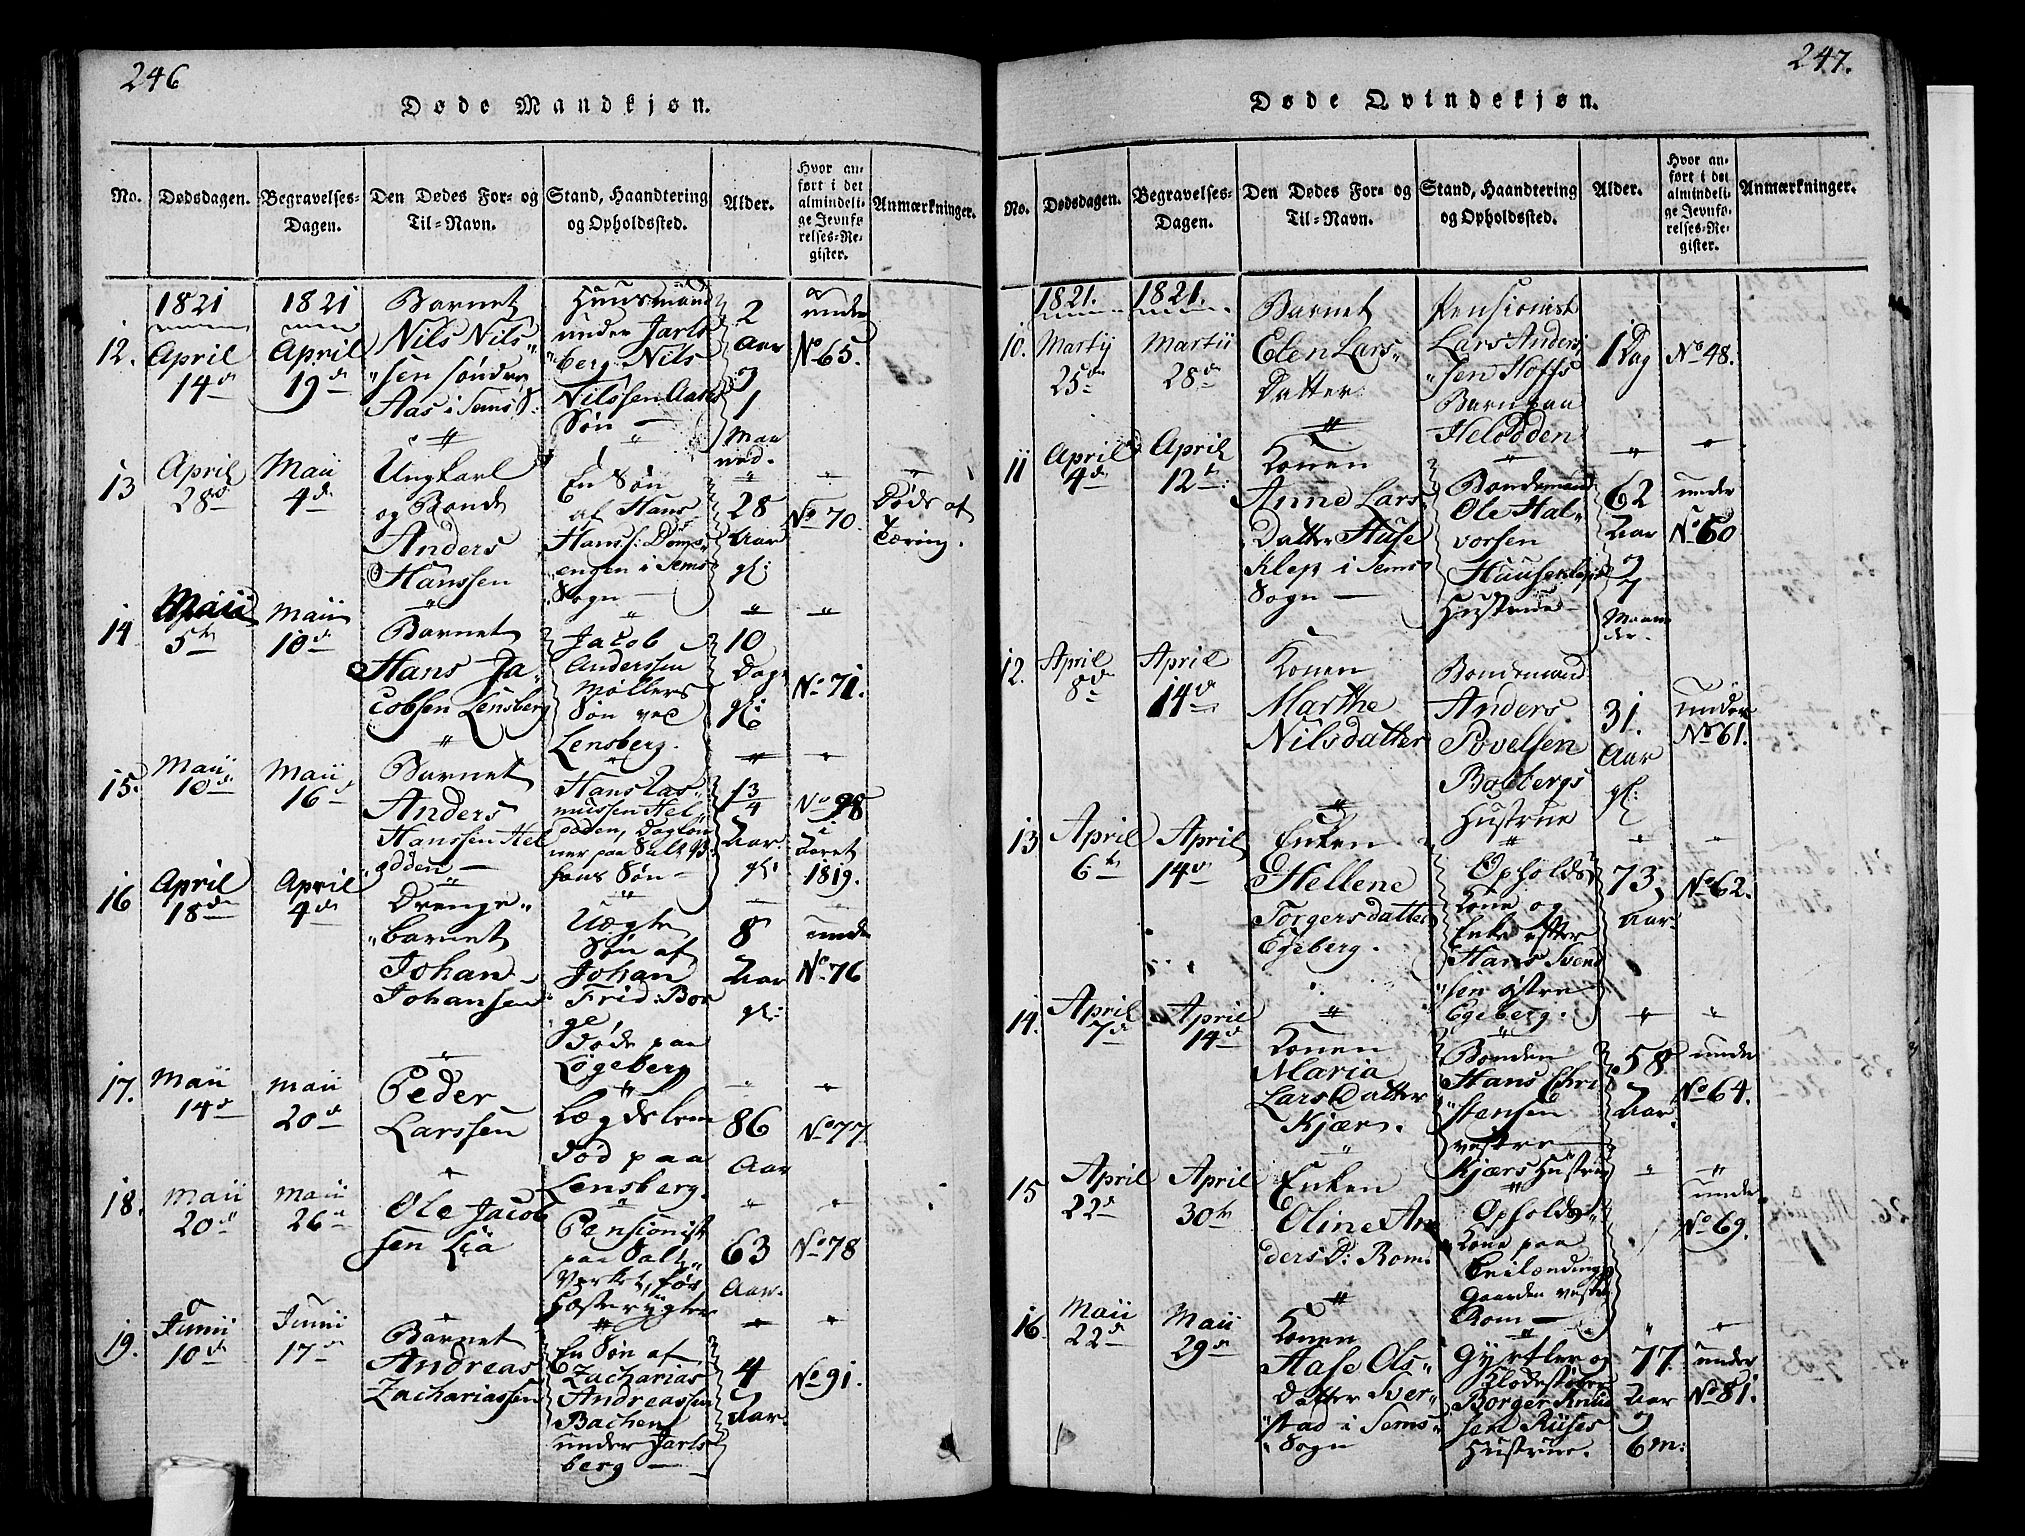 246
Døde Mandkjøn.
No.
Dødsdagen.
Begravelses-
Dagen.
Den Dødes For- og
Til-Navn.
Stand, Haandtering
og Opholdssted.
Alder.
Hvor an-
ført i det
almindeli-
ge Jevnfø-
relses-Re-
gister.
Anmærkninger.
12.
1821
April
14de
1821
April
19de
Barnet
Nils Nils-
sen søndre
Aas i Sems S:
Huusmand
under Jarls-
berg Nils
Nilssen Aases
Søn —
2
Aar
og
1
Maa
ned.
under
No 65.
13
April
28de
Maii
4de
Ungkarl
og Bonde
Anders
Hanssen
En Søn
af Hans
Hanss:
engen i Sems
Sogn —
28
Aar
gl:
No 70.
Døde af
Tæring.
14
Maii
5te
Maii
10de
Barnet
Hans Ja-
cobsen Lensberg
Jacob
Anderssen
Møllers
Søn ved
Lensberg.
10
Dage
gl:
No 71.
15.
Maii
10de
Maii
16de
Barnet
Anders
Hanssen Hel
godden —
Hans Ras-
mussen Hel
odden, Dagløn
ner paa Salt
hans Søn —
1 3/4
Aar
gl:
No 98
i
Aaret
1819.
16
April
18de
April
4de
Drenge-
barnet
Johan
Johansen
Uægte
Søn af
Johan
Frid: Bor
ge
Døde paa
Løgeberg
8
Aar
gl:
under
No 76
17.
Maii
14de
Maii
20de
Peder
Larssen
Lægdslem
Død paa
Lensberg.
86
Aar
No 77
18.
Maii
20de
Maii
26de
Ole Jacob
sen Liä
Pensionist
paa Salt-
Værket,
63
Aar.
No 78
19.
Junii
10de
Junii
17de
Barnet
Andreas
Zachariassen
En Søn af
Zacharias
Andreassen
Bachen
under Jarls
berg —
4
Aar.
No 91.
247.
Døde Qvindekjøn.
No.
Dødsdagen.
Begravelses-
Dagen.
Den Dødes For- og
Til-Navn.
Stand, Haandtering
og Opholdssted.
Alder.
Hvor an-
ført i det
almindeli-
ge Jevnfø-
relses-Re-
gister.
Anmærkninger.
10.
1821.
Martij
25de
1821.
Martii
28de
Barnet
Elen Lars-
Datter
Pensionist
Lars Anders
sen Hoffs
Barn paa
Helodden
1 Dag
No 48.
11
April
4de
April
12te
Konen
Anne Lars
Datter Huse
Klep i Sems
Sogn —
Bondemand
Ole Hal-
vorsen
Huuseklep
Hustrue —
62
Aar
og
7
Maane
der.
under
No 60
12.
April
8de
April
14de
Konen
Marthe
Nilsdatter
Bondemand
Anders
Povelsen
Bolbergs
Hustrue
31.
Aar
gl:
under
No 61.
13
April
6te
April
14de
Enken
Hellene
Torgersdatter
Egeberg.
Opholds
Kone og
Enke efter
Hans Svend
sen østre
Egeberg.
73
Aar
No 62.
14.
April
7de
April
14de
Konen
Maria
Lars Datter
Kjær.
Bonden
Hans Chri
stensen
vestre
Kjærs Hustrue
58.
Aar.
under
No 64.
15
April
22de
April
30te
Enken
Oline An
ders D: Rom.
Opholds
Kone paa
Gaarden vestre
Rom —
under
No 69.
16
Maii
22de
Maii
29de
Konen
Hase Ols-
Datter Sver-
stad i Sems
Sogn
Gjørtler og
Klokestøber
Borger
sen Ruses
Hustrue.
77.
Aar
og
6 m:
under
No 81.